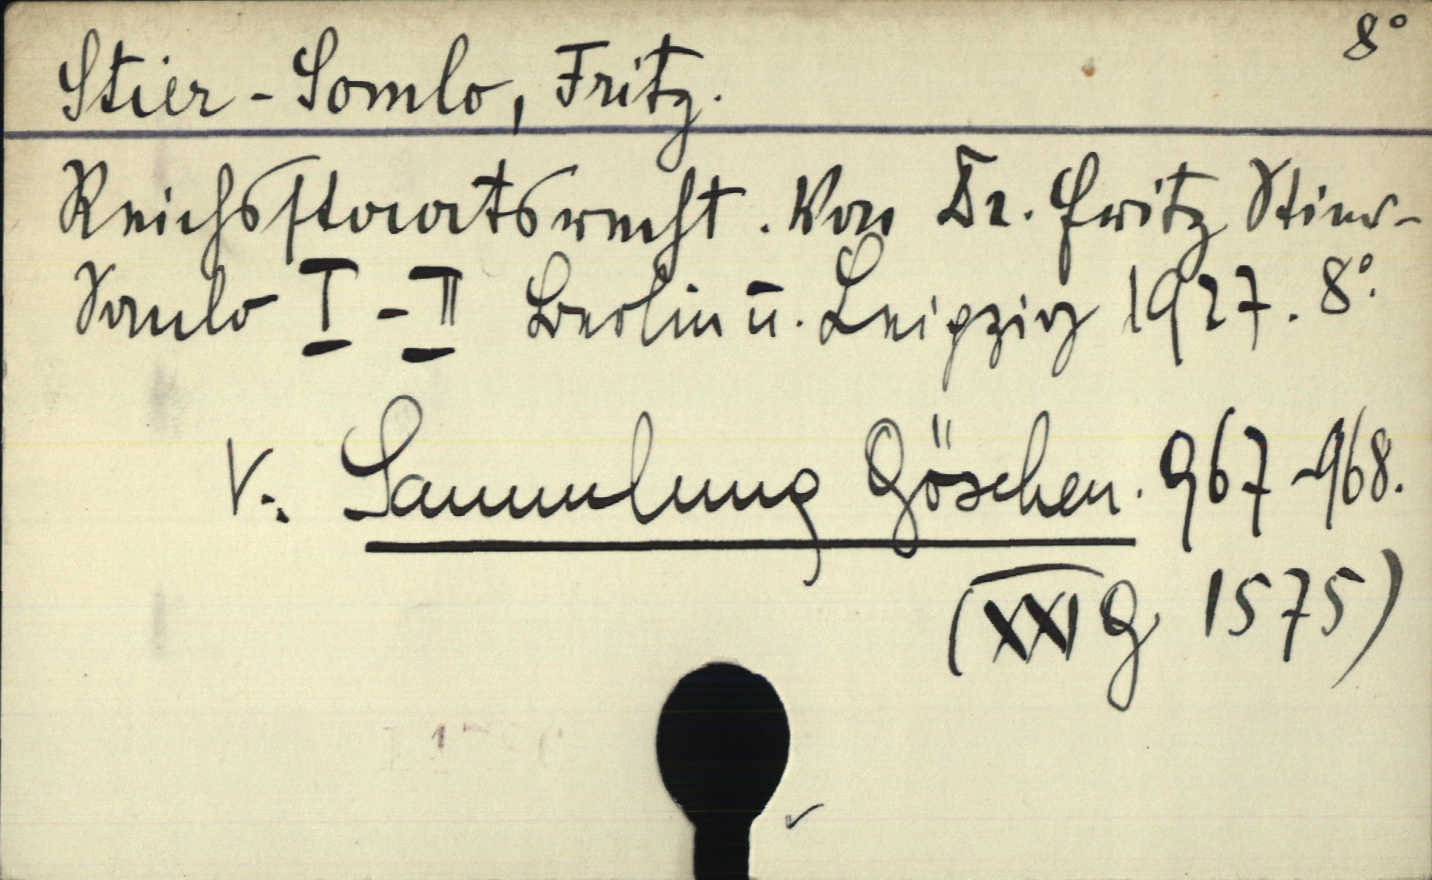 8°
Stier-Somlo, Fritz.
Reichsstaatsrecht. Von Dr. Fritz Stier-
Somlo I-II Berlin u. Leipzig 1927. 8°.
V. Sammlung Göschen. 967-968.
(XXI G 1575)